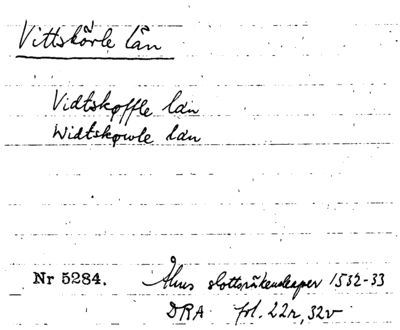 Vittskövle län
Vidtskøffle län
Widtskøwle län
Nr 5284. Åhus slottsräkenskaper 1532-33
DRA fol. 22r, 32v